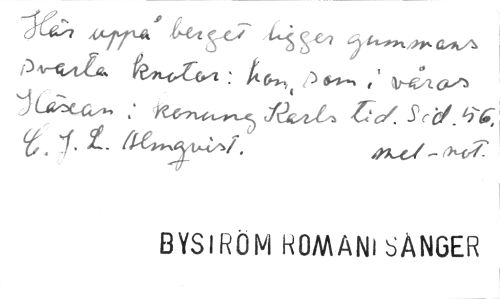 Här uppå berget ligger gummans
svarta knotor: hon, som i våras
Häxan i konung Karls tid. Sid. 56.
C. J. L. Almqvist. mel-not.
BYSTRÖM ROMANISÅNGER